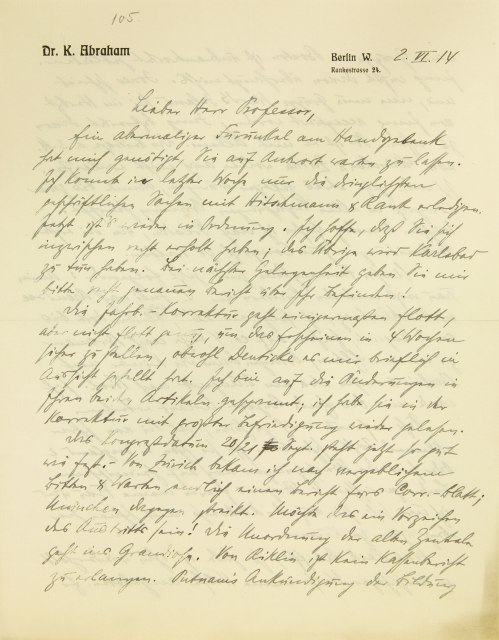 105.
Dr. K. Abraham
Berlin W. 2. VI. 14
Rankestrasse 24.
Lieber Herr Professor,
Ein abermaliger Furunkel am Handgelenk
hat mich genötigt, Sie auf Antwort warten zu lassen.
Ich konnte in letzter Woche nur die dringlichsten
geschäftlichen Sachen mit Hitschmann & Rank erledigen.
Jetzt ist's wieder in Ordnung. Ich hoffe, daß Sie sich
inzwischen recht erholt haben; das Übrige wird Karlsbad
zu tun haben. Bei nächster Gelegenheit geben Sie mir
bitte recht genauen Bericht über Ihr Befinden!
Die Jahrb.-Korrektur geht einigermaßen flott,
aber nicht flott genug, um das Erscheinen in 4 Wochen
sicher zu stellen, obwohl Deuticke es mir brieflich in
Aussicht gestellt hat. Ich bin auf die Änderungen in
Ihren beiden Artikeln gespannt; ich habe sie in der
Korrektur mit großer Befriedigung wieder gelesen.
Das Congreßdatum 20/21 Sept. steht jetzt so gut
wie fest. - Von Zürich bekam ich nach vergeblichem
Bitten & Warten endlich einen Bericht fürs Corr.-blatt;
München dagegen streikt. Möchte das ein Vorzeichen
des Austritts sein! Die Unordnung der alten Zentrale
geht ins Grandiose. Von Riklin ist kein Kassenbericht
zu erlangen. Putnams Ankündigung der Bildung